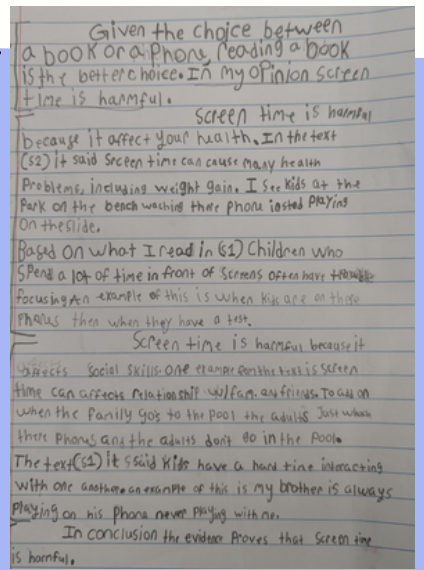 Given the choice between
a book or a Phone, reading a book
is the better choice. In my opinion screen
time is harmful.
Screen time is harmful
because it affect your health. In the text
(S2) it said Srceen time can cause many health
Problems, including weight gain. I see kids at the
Park on the bench waching there phone insted Playing
On the slide.
Based on what I read in (S1) Children who
Spend a lot of time in front of screens often have trouble
focusing An example of this is when kids are on there
Phones then when they have a test.
Screen time is harmful because it
affects social skills. one example from the text is screen
time can affects relationship w/fam. and friends. To add on
when the family go's to the pool the adults Just
there phones and the adults don't go in the Pool.
The text (S1) it ssaid Kids have a hard time interacting
with one another an example of this is my brother is always
Playing on his phone never playing with me.
In conclusion the evidence Proves that Screen time
is harmful.